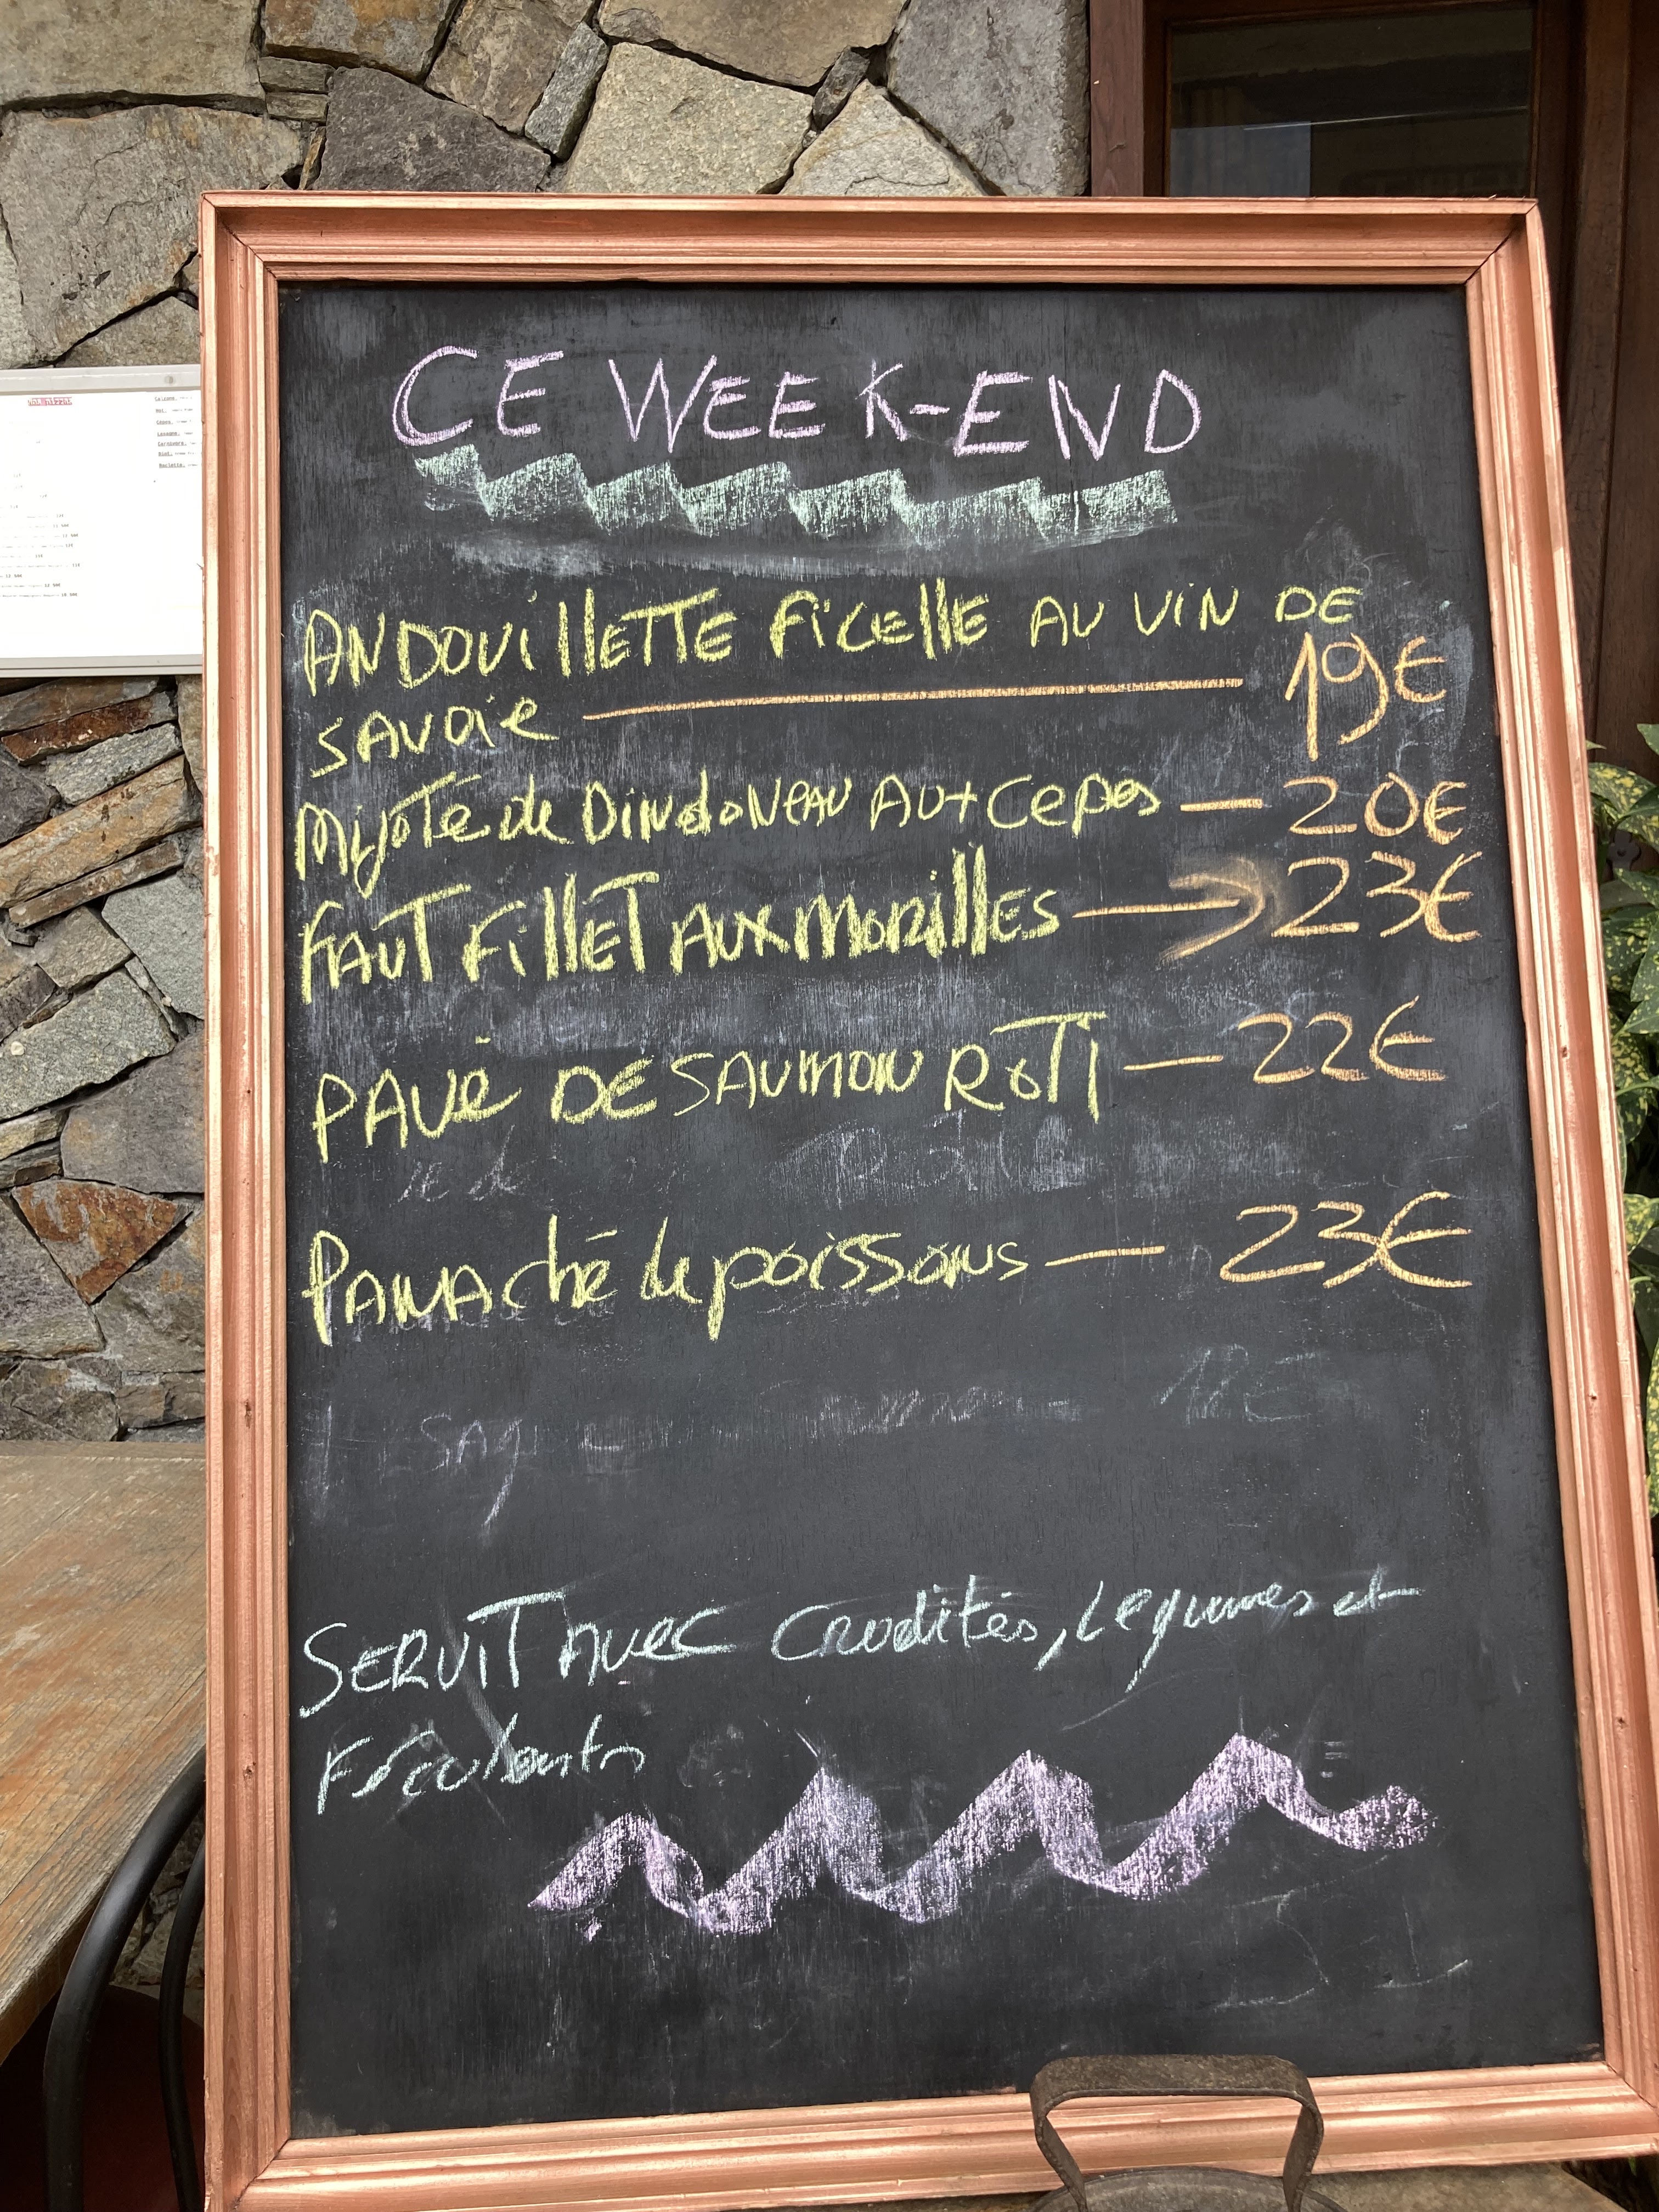 CE WEEK-END
ANDOUILLETTE FICELLE AU VIN DE
SAVOIE 19€
MIJOTÉ de DINDONNEAU AUX CEPES 20€
FAUT FILLET AUX MORILLES 23€
PAVÉ DE SAUMON ROTI 22€
PANACHÉ de poissons 23€
SERVIT AVEC CRUDITÉS, LÉGUMES et
Féculents